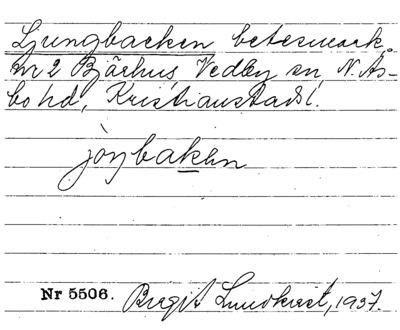 Ljungbacken betesmark,
nr 2 Bjärhus, Vedby sn N. Ås-
bo hd, Kristianstads l.
jòŋbakən
Nr 5506. Birgit Lundkvist, 1937.